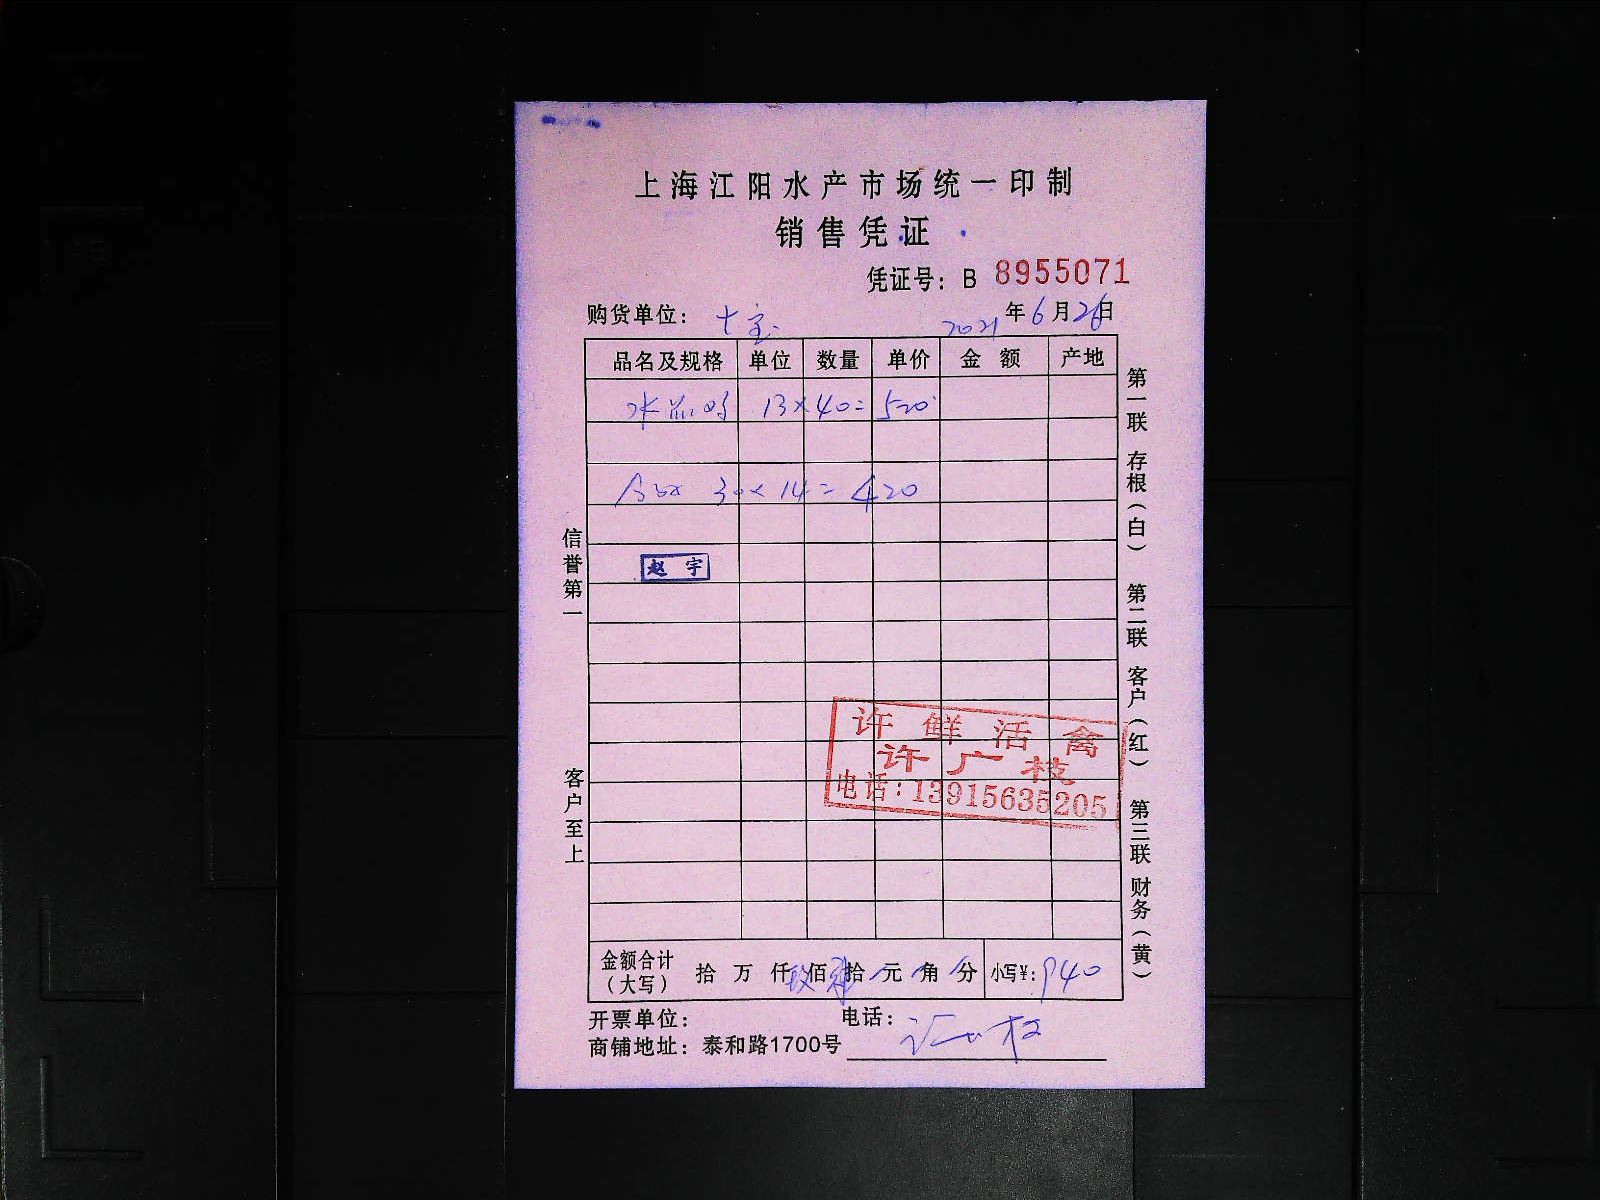 上海江阳水产市场统一印制
销售凭证
凭证号：B 8955071
购货单位： 七宝 2021年6月26日
品名及规格 单位 数量 单价 金额 产地
13×40=520
30×14=420
赵宇
许鲜活禽
许广枝
电话：13915635205
金额合计（大写） 拾 万 仟 玖佰 肆拾 元 角 分 小写¥：940
开票单位： 电话：
商铺地址：泰和路1700号
信誉第一
客户至上
第一联 存根（白） 第二联 客户（红） 第三联 财务（黄）